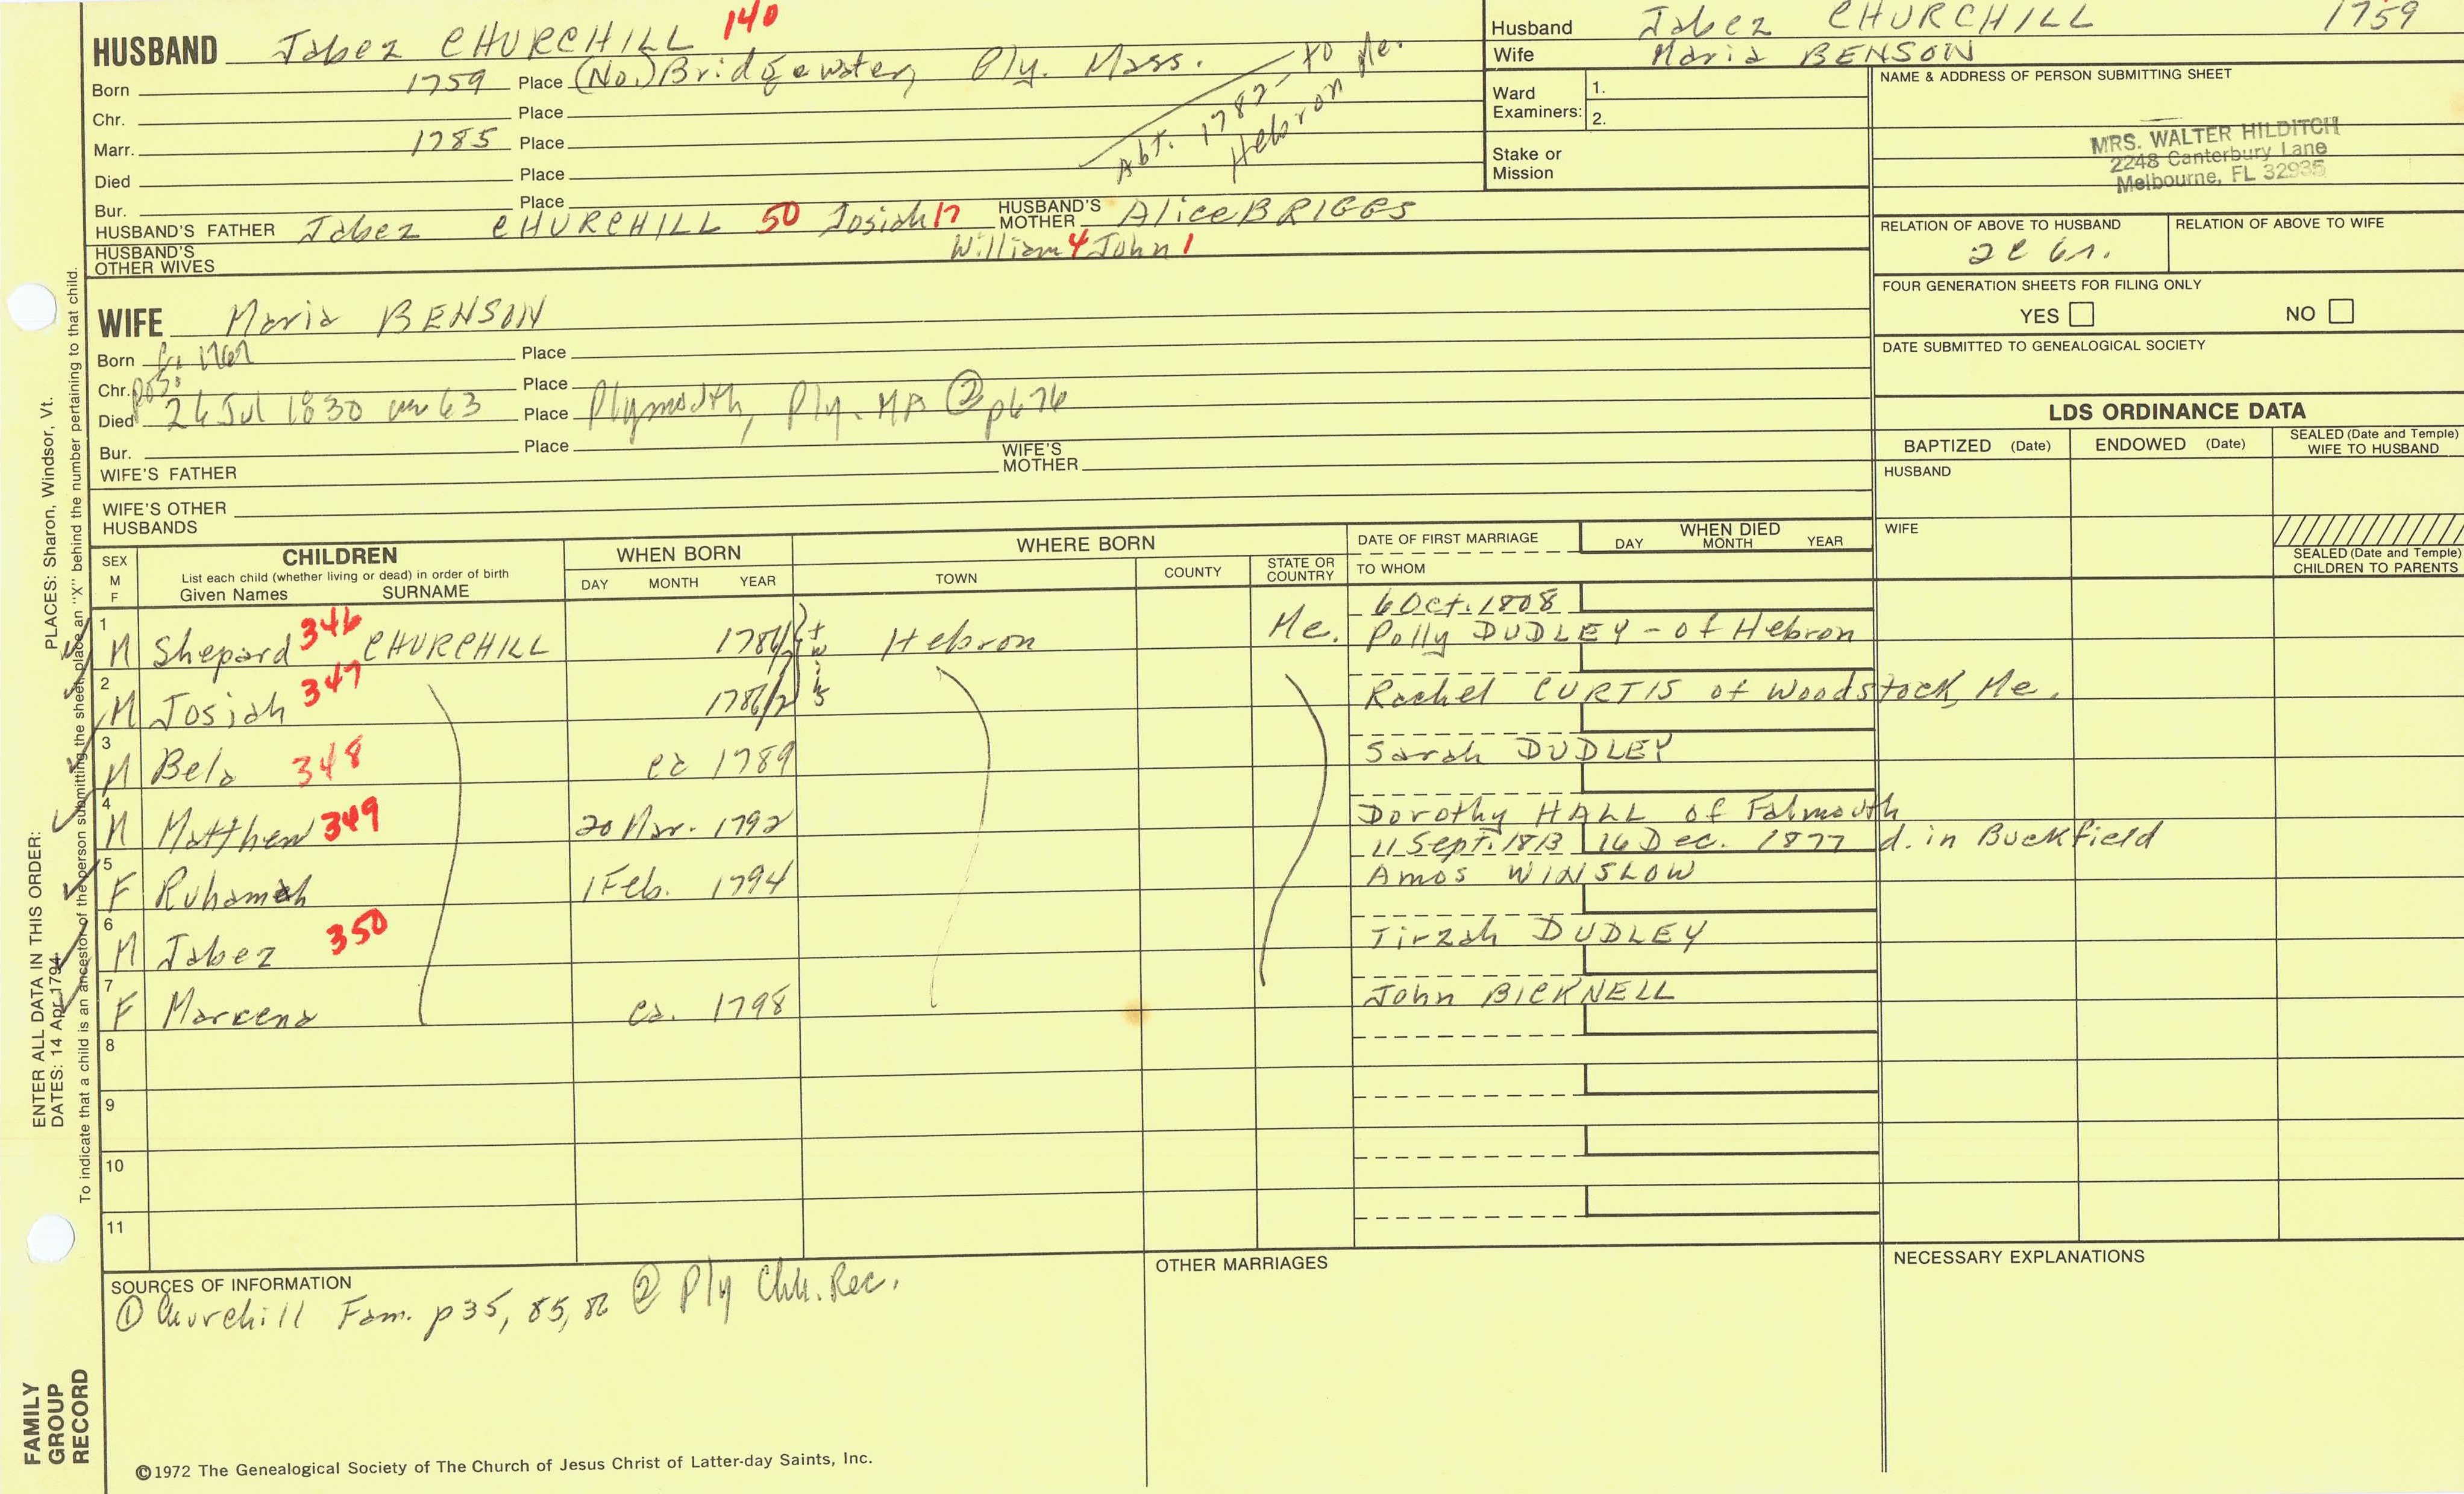 HUSBAND Jabez CHURCHILL 140
Born 1759 Place (No.) Bridgewater, Ply. Mass.
Chr. Place
Abt. 1787- to Hebron Me.
Marr. 1785 Place
Died Place
Bur. Place
HUSBAND'S FATHER Jabez CHURCHILL 50 Josiah 17 HUSBAND'S MOTHER Alice BRIGGS
William 4 John 1
HUSBAND'S OTHER WIVES
Husband Jabez CHURCHILL 1759
Wife Maria BENSON
Ward Examiners: 1.
2.
Stake or Mission
NAME & ADDRESS OF PERSON SUBMITTING SHEET
MRS. WALTER HILDITCH
2248 Canterbury Lane
Melbourne, FL 32935
RELATION OF ABOVE TO HUSBAND RELATION OF ABOVE TO WIFE
FOUR GENERATION SHEETS FOR FILING ONLY
YES NO
DATE SUBMITTED TO GENEALOGICAL SOCIETY
WIFE Maria BENSON
Born 1767 Place
Chr. Place
Died 26 Jul 1830 63 Place Plymouth, Ply. MA ② p676
Bur. Place
WIFE'S FATHER WIFE'S MOTHER
WIFE'S OTHER HUSBANDS
LDS ORDINANCE DATA
BAPTIZED (Date) ENDOWED (Date) SEALED (Date and Temple) WIFE TO HUSBAND
HUSBAND
WIFE
SEALED (Date and Temple) CHILDREN TO PARENTS
SEX M F CHILDREN WHEN BORN WHERE BORN DATE OF FIRST MARRIAGE WHEN DIED
List each child (whether living or dead) in order of birth
Given Names SURNAME DAY MONTH YEAR TOWN COUNTY STATE OR COUNTRY TO WHOM DAY MONTH YEAR
6 Oct. 1808
1 M Shepard 346 CHURCHILL twins Hebron Me. Polly DUDLEY - of Hebron
2 M Josiah 347 Rachel CURTIS of Woodstock, Me.
3 M Bela 348 ca 1789 Sarah DUDLEY
4 M Matthew 349 20 Mar. 1792 Dorothy HALL of Falmouth
11 Sept. 1813 16 Dec. 1877 d. in Buckfield
5 F Ruhamah 1 Feb. 1794 Amos WINSLOW
6 M Jabez 350 Tirzah DUDLEY
7 F Marcena ca. 1798 John BICKNELL
8
9
10
11
SOURCES OF INFORMATION
① Churchill Fam. p 35, 85, 86 ② Ply Chh. Rec.
OTHER MARRIAGES
NECESSARY EXPLANATIONS
©1972 The Genealogical Society of The Church of Jesus Christ of Latter-day Saints, Inc.
FAMILY GROUP RECORD
ENTER ALL DATA IN THIS ORDER:
DATES: 14 Apr 1794
PLACES: Sharon, Windsor, Vt.
To indicate that a child is an ancestor of the person submitting the sheet, place an "X" behind the number pertaining to that child.